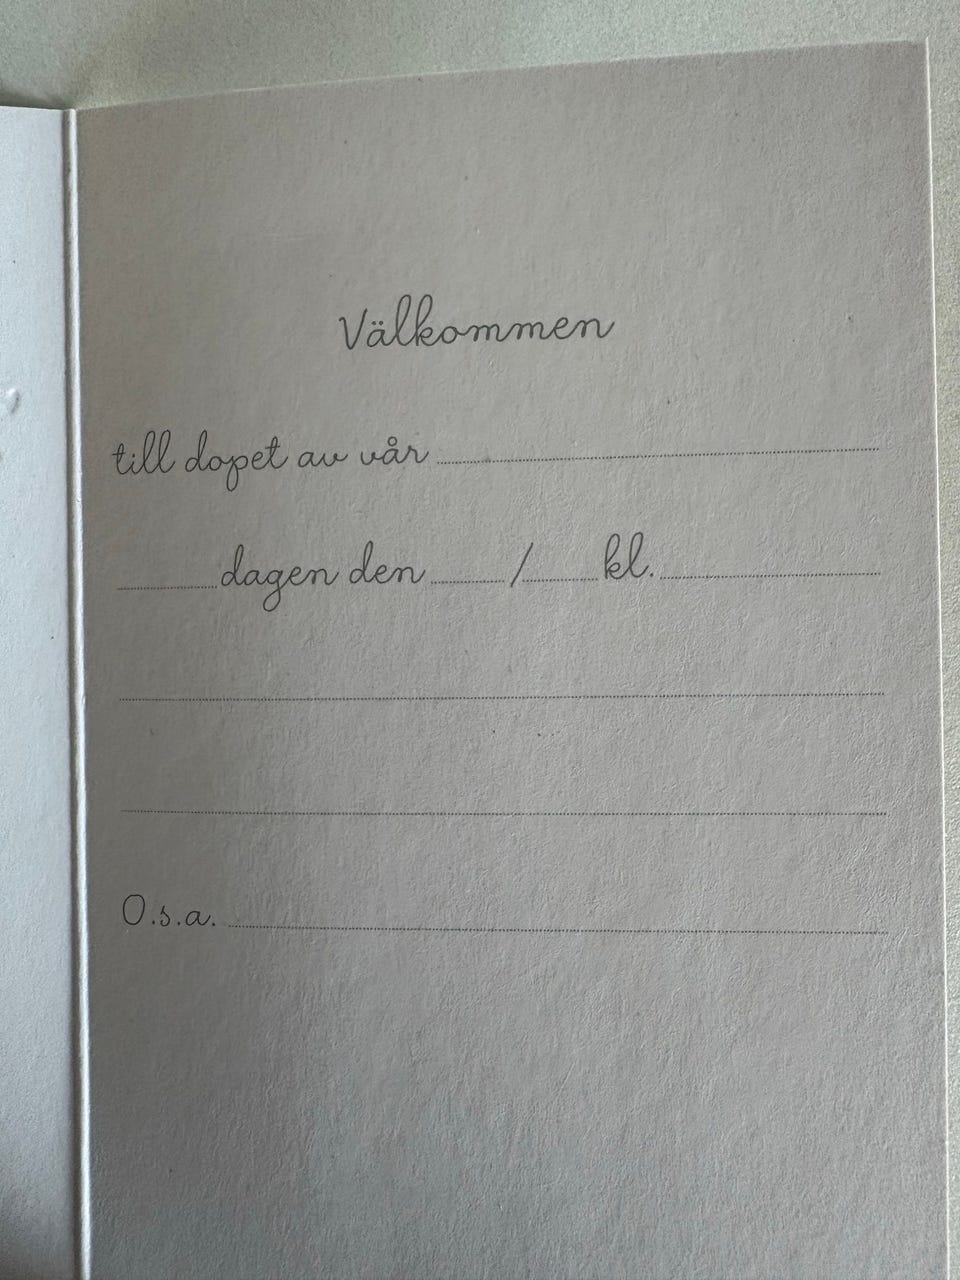 Välkommen
till dopet av vår
dagen den / kl.
O.s.a.